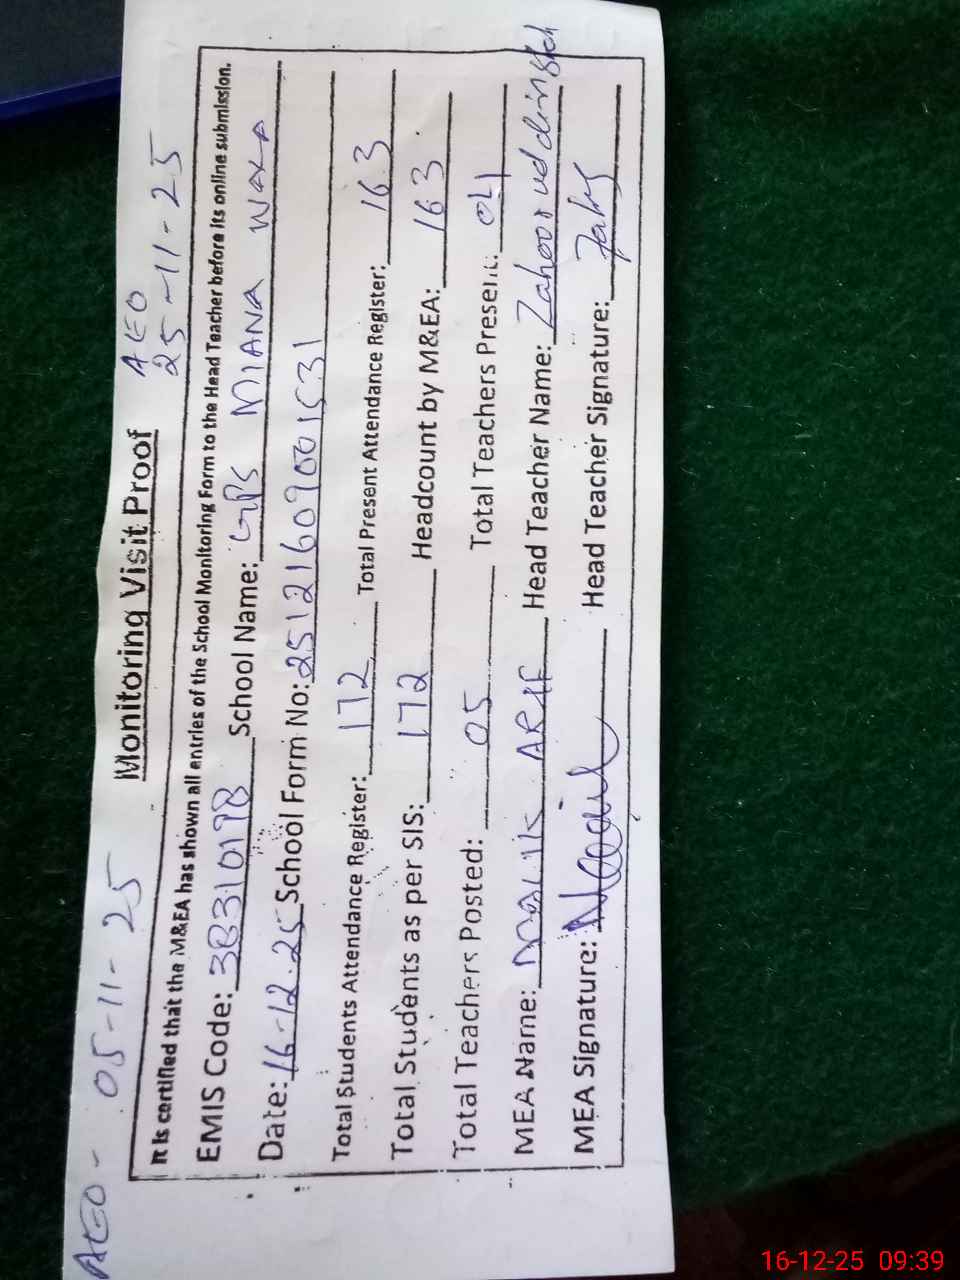 AEO - 05-11-25
AEO
25-11-25
Monitoring Visit Proof
It is certified that the M&EA has shown all entries of the School Monitoring Form to the Head Teacher before its online submission.
EMIS Code: 38310198 School Name: GPS MIANA WALA
Date: 16-12-25 School Form No: 25121609001531
Total Students Attendance Register: 172 Total Present Attendance Register: 163
Total Students as per SIS: 172 Headcount by M&EA: 163
Total Teachers Posted: 05 Total Teachers Present: 04
MEA Name: MALIK ARIF Head Teacher Name: Zahoor ud din
MEA Signature: Head Teacher Signature:
16-12-25 09:39